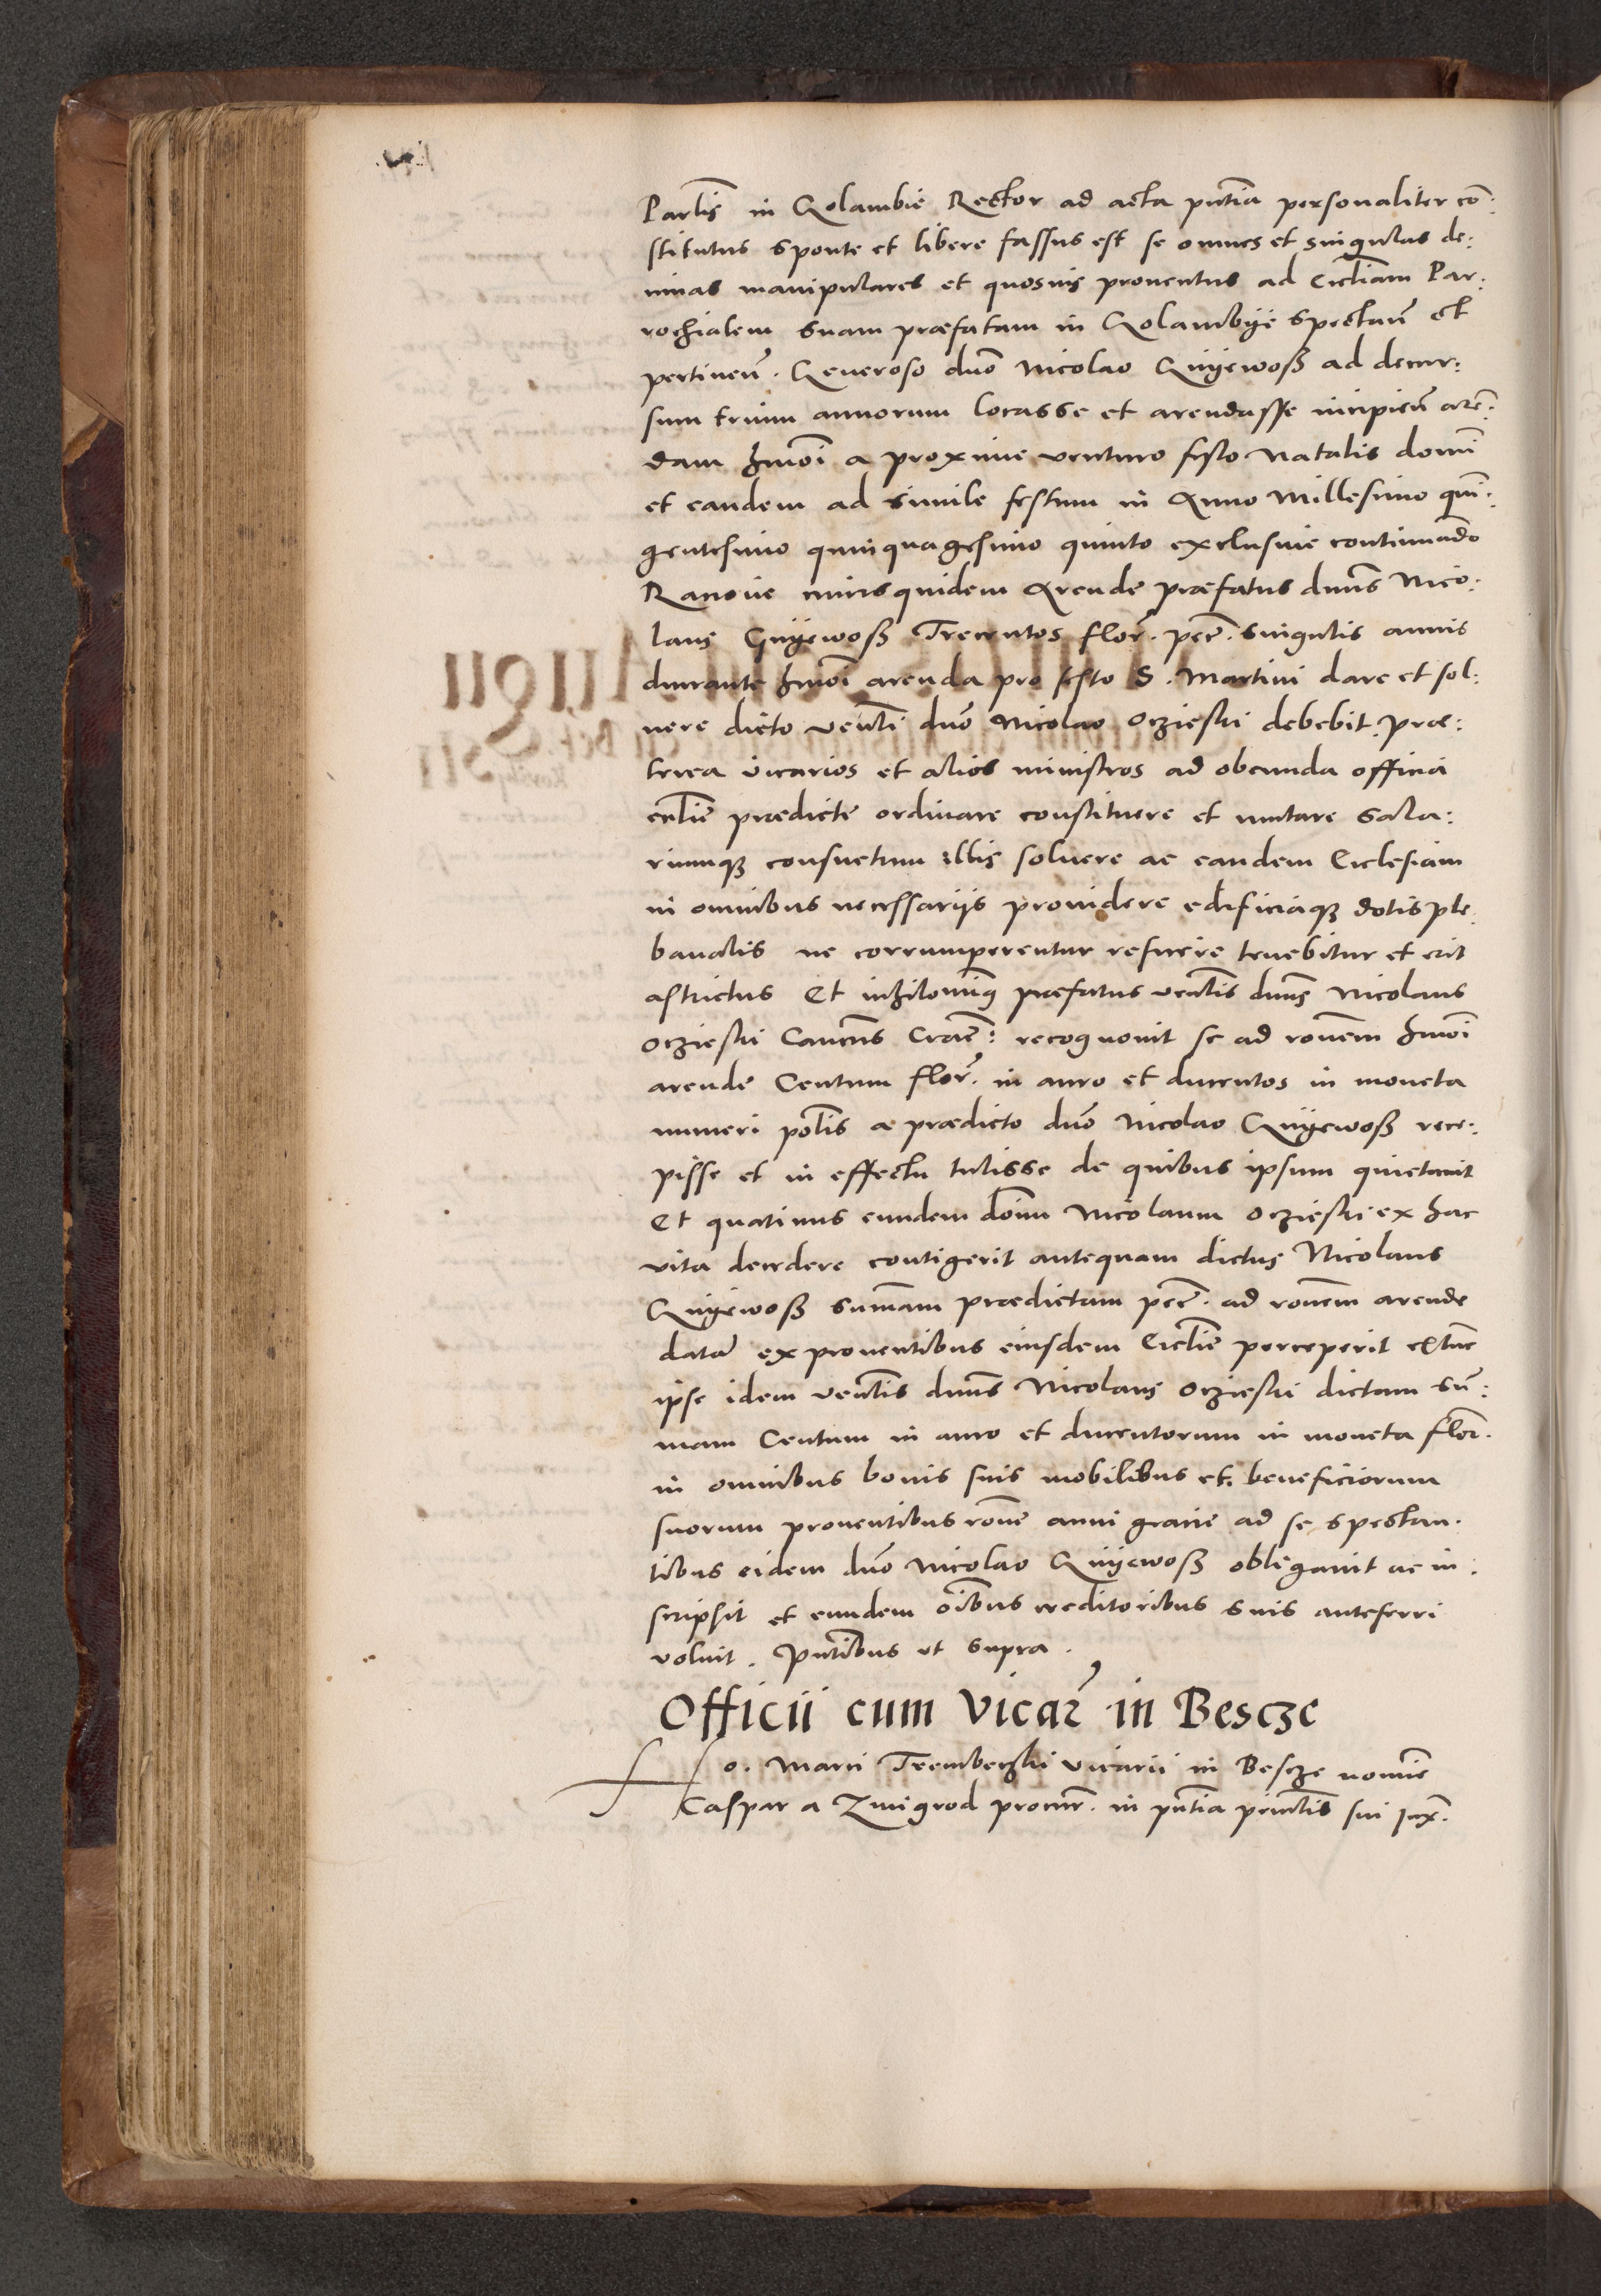 Parlis in Golambie Rector ad acta pntia personaliter co:
stitutus sponte et libere fassus est se omnes et singulas de:
cimas manipulares et quosvis proventus ad Ecctiam Par:
rochialem suam præfatam in Golambye spectan et
pertinen. Generoso dno Nicolao Gnyewosß ad decur:
sum trium annorum locasse et arendasse incipien aren:
dam hmoi a proxime venturo festo Natalis domi
et eandem ad simile festum in Anno Millesimo quin:
gentesimo quinquagesimo quinto exclusive continuando
Racione cuius quidem Arende præfatus dnus Nico:
laus Gnyewosß Trecentos flor. pec. singulis annis
durante hmoi arenda pro festo S. Martini dare et sol:
vere dicto venli dno Nicolao Oczieski debebit. præ:
terea vicarios et alios ministros ad obeunda officia
ecclie prædicte ordinare constituere et mutare sala:
riumque consuetum illis solvere ac eandem Ecclesiam
in omnibus necessariis providere edificiaque dotis ple
banalis ne corrumperentur reficere tenebitur et erit
astrictus Et inhilominus præfatus venlis dnus Nicolaus
Oczieski Cancus Crac: recognovit se ad ronem hmoi
arende Centum flor. in auro et ducentos in moneta
numeri polis a prædicto dno Nicolao Gnyewosß rece:
pisse et in effectu tulisse de quibus ipsum quietavit
Et quatinus eundem dnum Nicolaum Oczieski ex hac
vita decedere contigerit antequam dictus Nicolaus
Gnyewosß summam prædictam pec. ad ronem arende
datam ex proventibus eiusdem Ecclie perceperit extunc
ipse idem venlis dnus Nicolaus Oczieski dictam sum:
mam Centum in auro et ducentorum in moneta flor.
in omnibus bonis suis mobilibus et beneficiorum
suorum proventibus rone anni gracie ad se spectan.
tibus eidem dno Nicolao Gnyewosß obligavit ac in:
scripsit et eundem oibus creditoribus suis anteferri
voluit. Pntibus ut supra.
Officii cum Vicar in Bescze
Ho. Marci Trembeczki vicarii in Bescze nomine
Caspar a Zmigrod procur. in pntia princlis sui Jux.